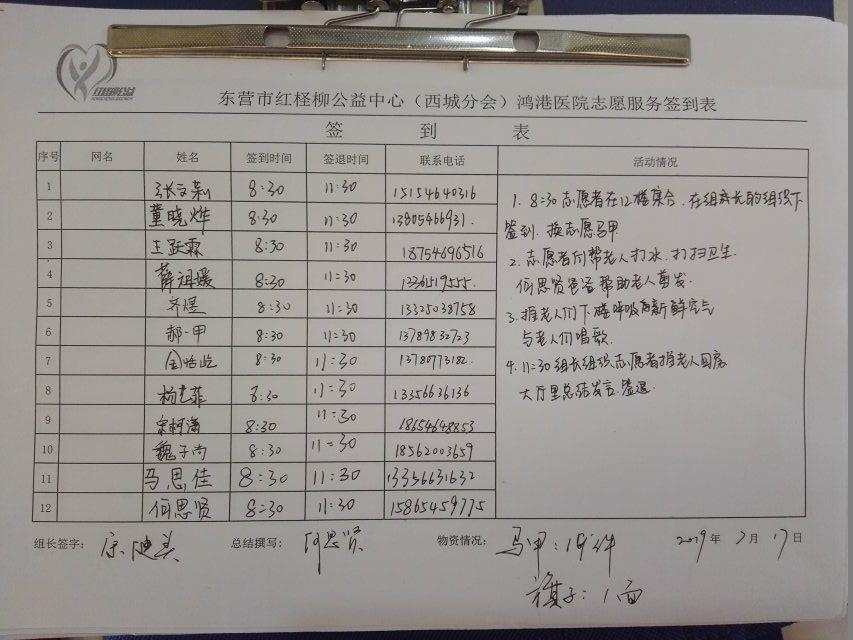 东营市红柽柳公益中心（西城分会）鸿港医院志愿服务签到表
签 到 表
序号 网名 姓名 签到时间 签退时间 联系电话 活动情况
1 张文新 8:30 11:30 15154640316
2 董晓烨 8:30 11:30 13805466931.
3 王跃霖 8:30 11:30 18754696516
4 薛祖媛 8:30 11:30
5 齐煜 8:30 11:30 13325038758
6 郝一甲 8:30 11:30 13789832723
7 8:30 11:30 13780773182.
8 杨艺菲 8:30 11:30 13356636136
9 8:30 11:30 18654648853
10 魏子尚 8:30 11:30 18562003659
11 马思佳 8:30 11:30 13356631632
12 何思贤 8:30 11:30 15865459775
1. 8:30志愿者在12楼集合.在组织下
签到.换志愿马甲
2. 志愿者们帮老人打水.打扫卫生.
何思贤爸爸帮助老人剪发.
3. 推老人们下楼呼吸新鲜空气
与老人们唱歌.
4. 11:30组长组织志愿者推老人回房
大厅里总结发言.签退.
组长签字： 总结撰写：何思贤 物资情况：马甲：19件 2019年 月17日
旗子：1面